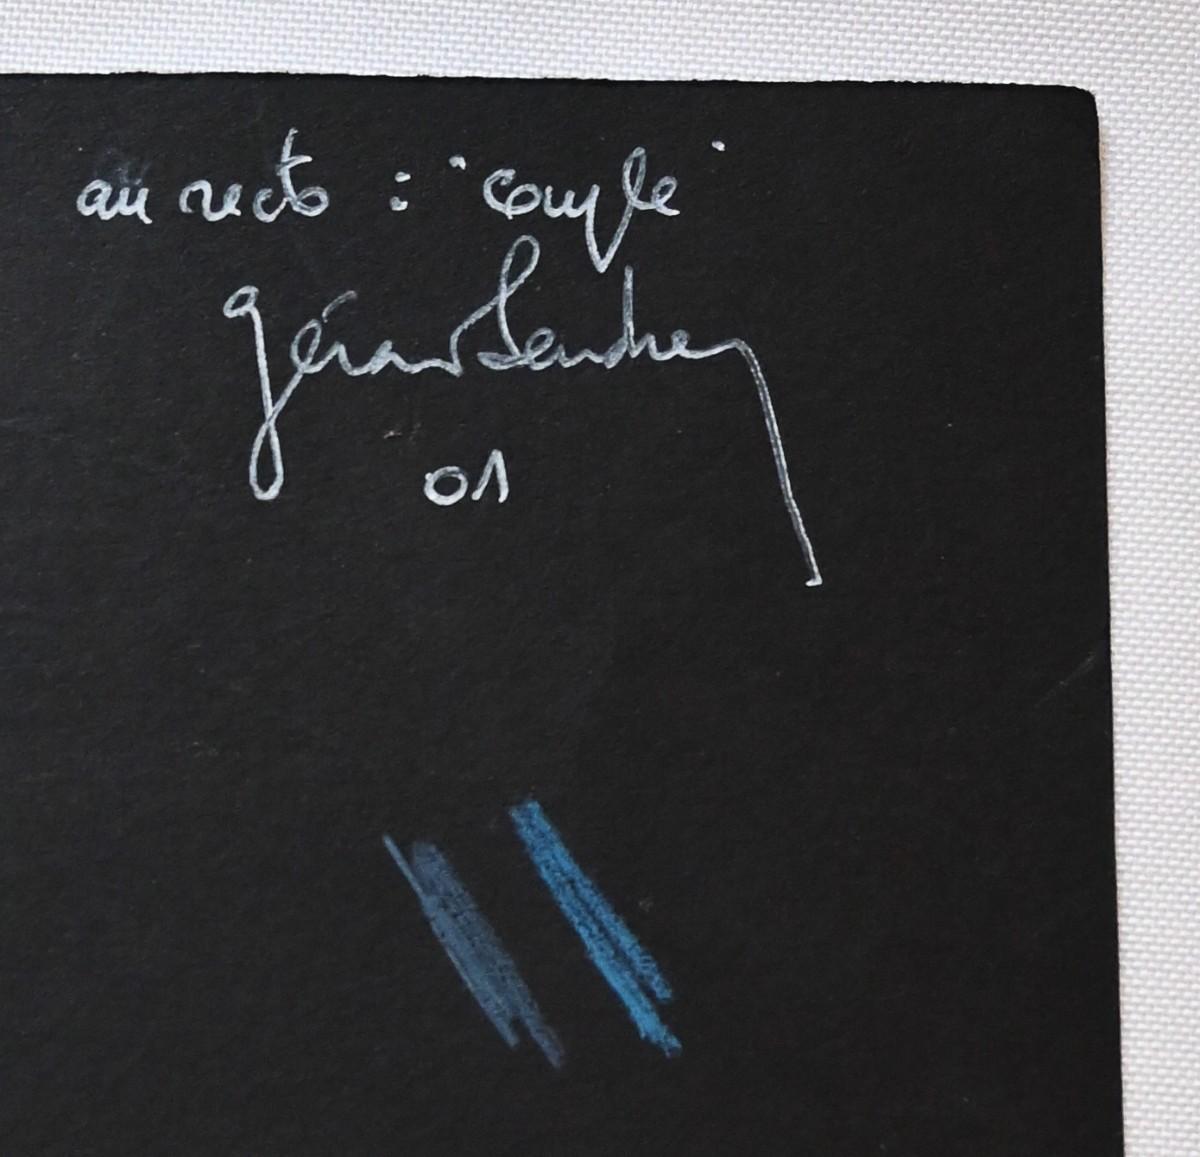 au recto : "couple"
Gérard Sendrey
01